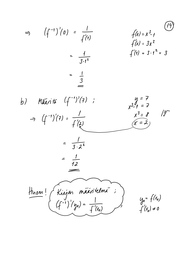 (14)
=> (f⁻¹)'(0) = 1 / f'(1)
f(x) = x³-1
f'(x) = 3x²
f'(1) = 3·1² = 3
= 1 / 3·1²
= 1 / 3
b) Määritä (f⁻¹)'(7) ;
y = 7
x³-1 = 7
x³ = 8
x = 2
-> (f⁻¹)'(7) = 1 / f'(2)
= 1 / 3·2²
= 1 / 12
Huom! Kirjan määritelmä :
(f⁻¹)'(y₀) = 1 / f'(x₀)
y₀ = f(x₀)
f'(x₀) ≠ 0